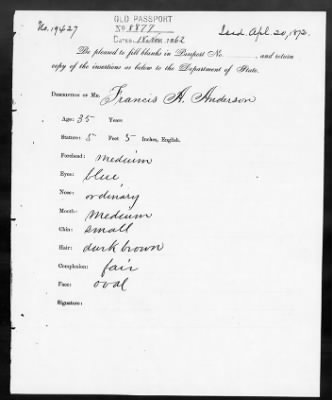 No. 19427
OLD PASSPORT
No 8877
DATED 1862
Issd. Apl 20, 1872.
Be pleased to fill blanks in Passport No. , and return
copy of the insertions as below to the Department of State.
DESCRIPTION OF MR. Francis A. Anderson
Age: 35 Years
Stature: 5 Feet 5 Inches, English.
Forehead: Medium
Eyes: blue
Nose: ordinary
Mouth: Medium
Chin: small
Hair: dark brown
Complexion: fair
Face: oval
Signature: